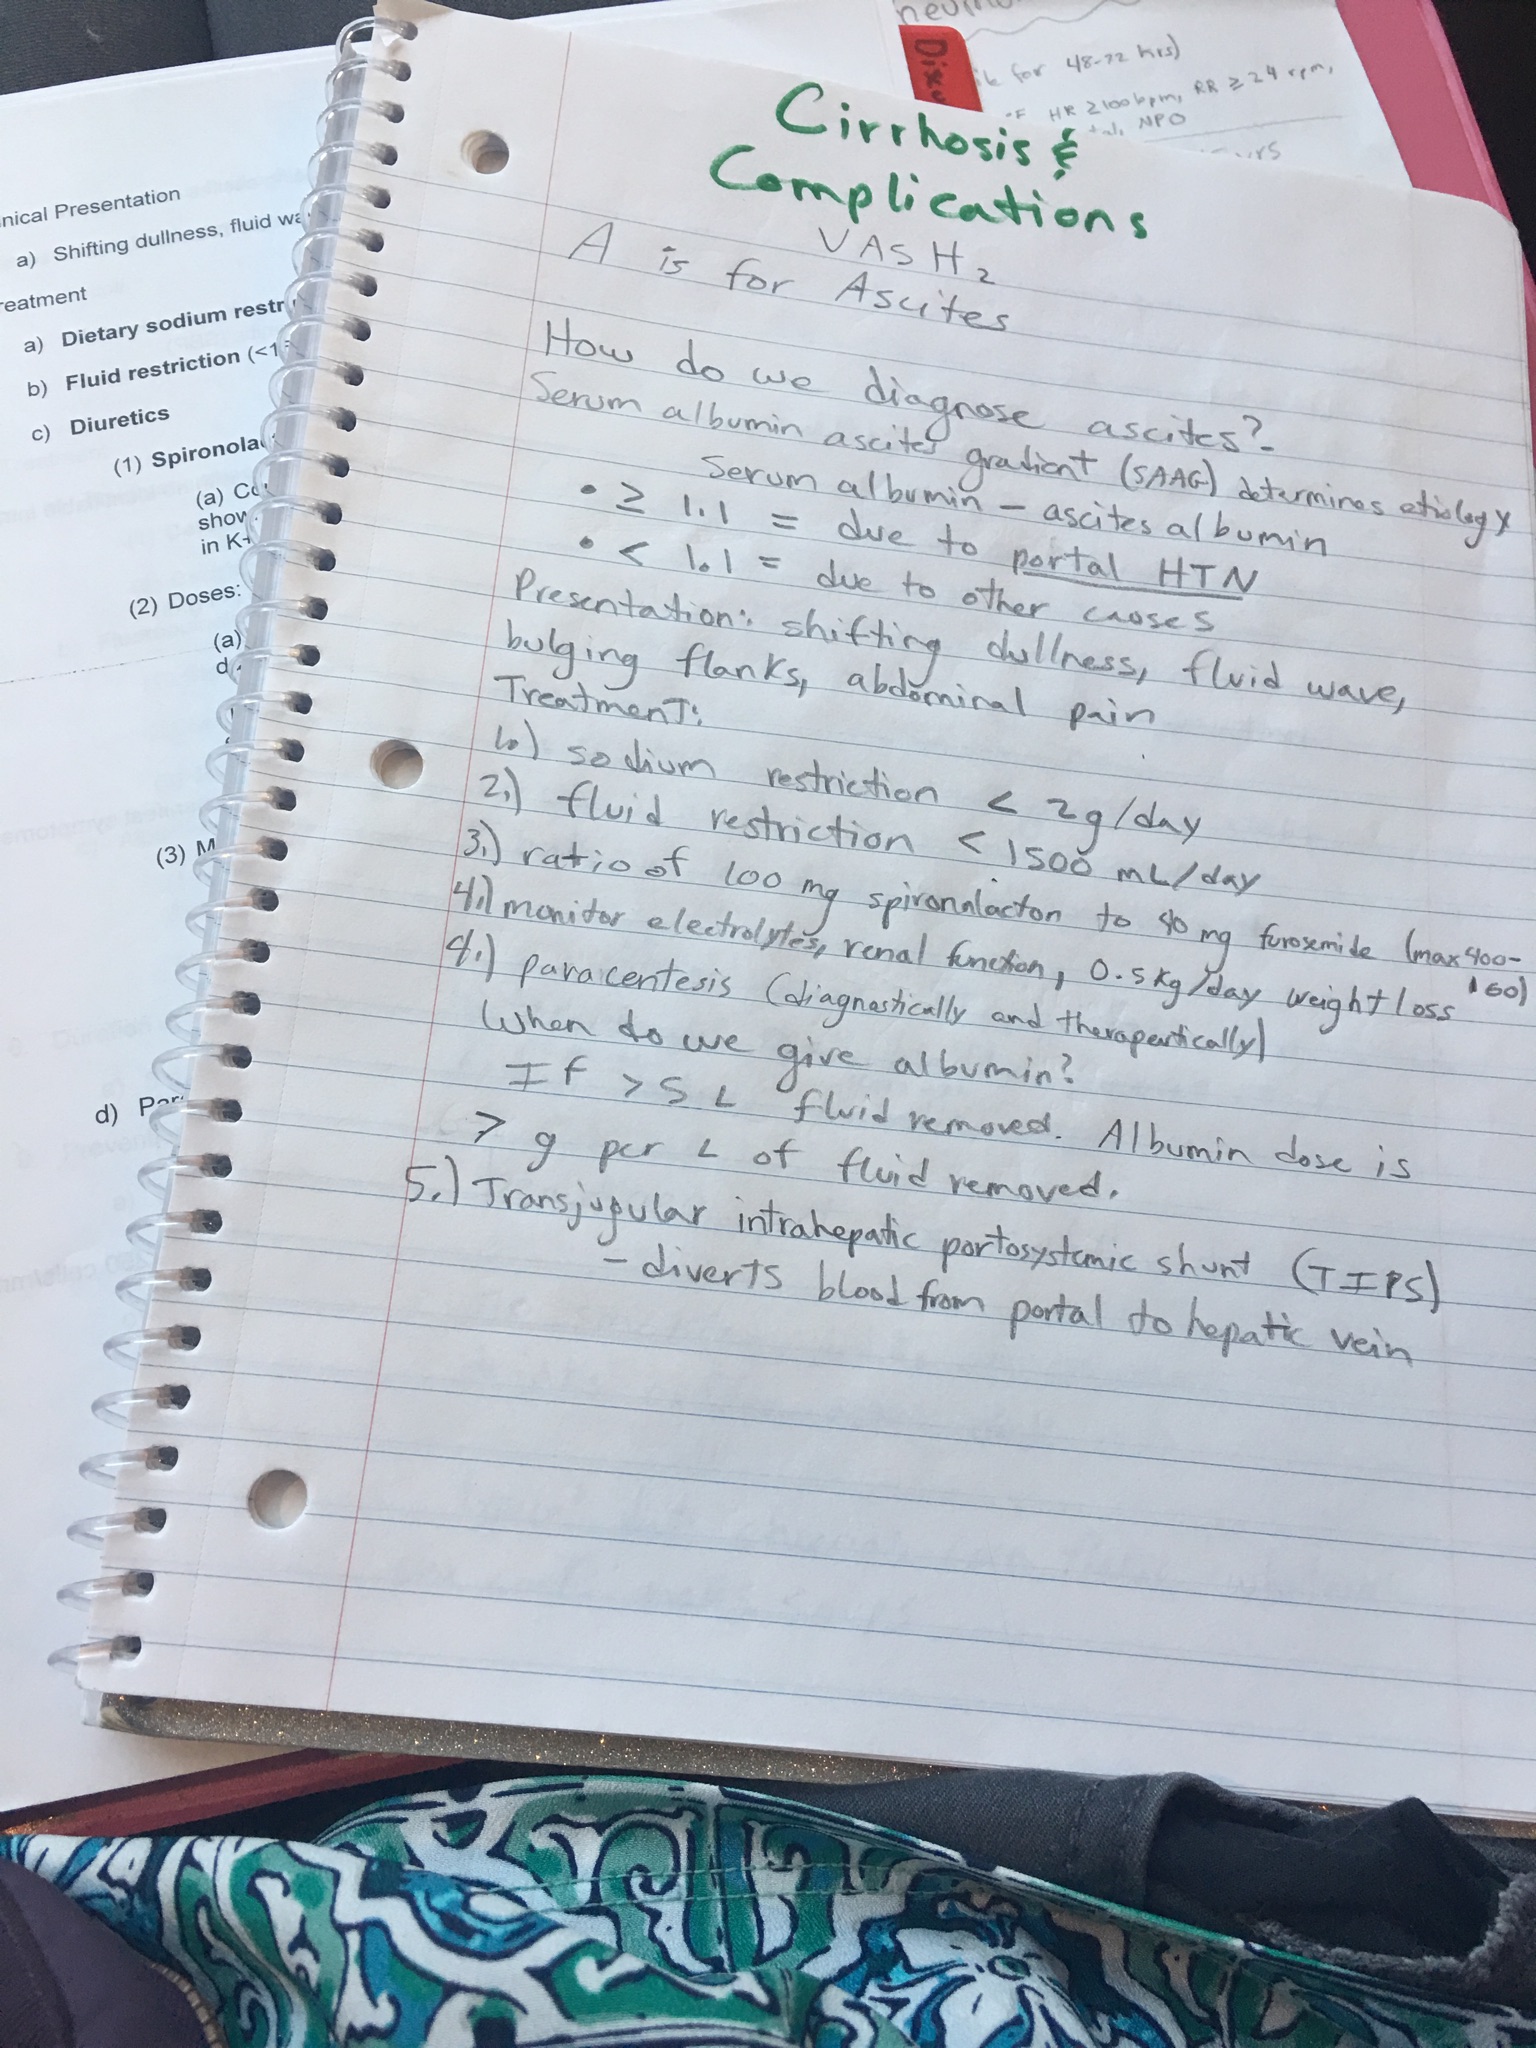 neu
k for 48-72 hrs)
°F HR ≥100bpm, RR ≥ 24 rpm,
NPO
Cirrhosis &
Complications
VASH2
A is for Ascites
How do we diagnose ascites?-
Serum albumin ascites gradient (SAAG) determines etiology
Serum albumin - ascites albumin
• ≥ 1.1 = due to portal HTN
• < 1.1 = due to other causes
Presentation: shifting dullness, fluid wave,
bulging flanks, abdominal pain
Treatment:
1.) sodium restriction < 2g/day
2.) fluid restriction < 1500 mL/day
3.) ratio of 100 mg spironalacton to 40 mg furosemide (max 400-
160)
4.) monitor electrolytes, renal function, 0.5 kg/day weight loss
4.) paracentesis (diagnostically and therapeutically)
When do we give albumin?
If > 5 L fluid removed. Albumin dose is
7 g per L of fluid removed.
5.) Transjugular intrahepatic portosystemic shunt (TIPS)
- diverts blood from portal to hepatic vein
nical Presentation
a) Shifting dullness, fluid wa
reatment
a) Dietary sodium restr
b) Fluid restriction (<1
c) Diuretics
(1) Spironola
(a) Co
show
in K+
(2) Doses:
(a)
d
(3) M
d) Par